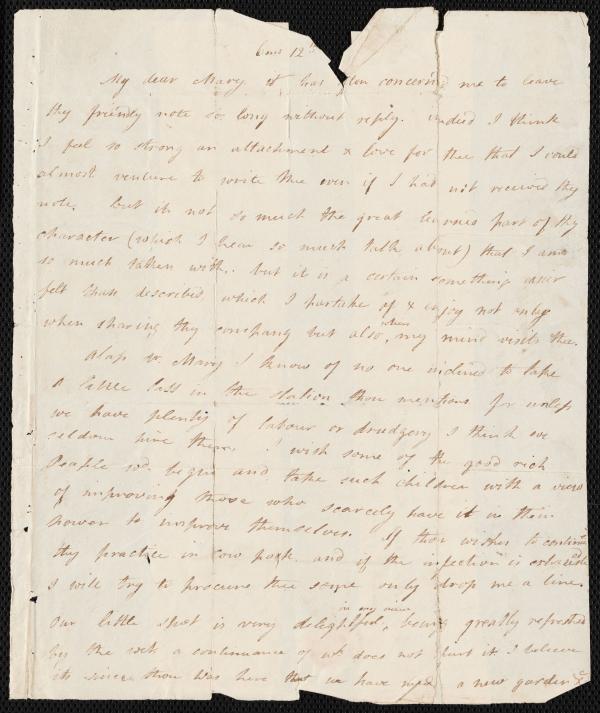 6mo 12th
My dear Mary it has been concerning me to leave
thy friendly note so long without reply. indeed I think
I feel so strong an attachment & love for thee that I could
almost venture to write thee even if I had not received thy
note. but it is not so much the great learned part of thy
character (which I hear so much talk about) that I am
so much taken with. but it is a certain something easier
felt than described, which I partake of & enjoy not only
when sharing thy company but also, when my mind visits thee.
Alass Dr. Mary I know of no one inclined to take
a little lass in the station thou mentions for unless
we have plenty of labour or drudgery I think we
seldom hire them. I wish some of the good rich
People wd. begin and take such children with a view
of improving those who scarcely have it in their
power to improve themselves. If thou wishes to continue
thy practice in cow pock and if the infection is exhausted
I will try to procure thee some only drop me a line.
Our little spot is very delightful, in my view being greatly refreshed
by the wet a continuance of wh does not hurt it I believe
its since thou was here that we have made a new garden &c